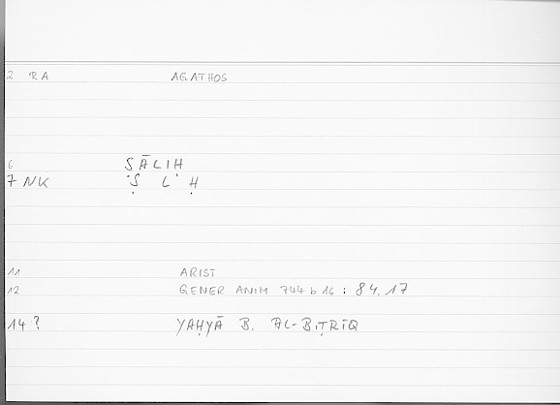 2 RA AGATHOS
6 ṢĀLIḤ
7 NK Ṣ L Ḥ
11 ARIST
12 GENER ANIM 744 b 16 : 84,17
14 ? YAḤYĀ B. AL-BIṬRĪQ